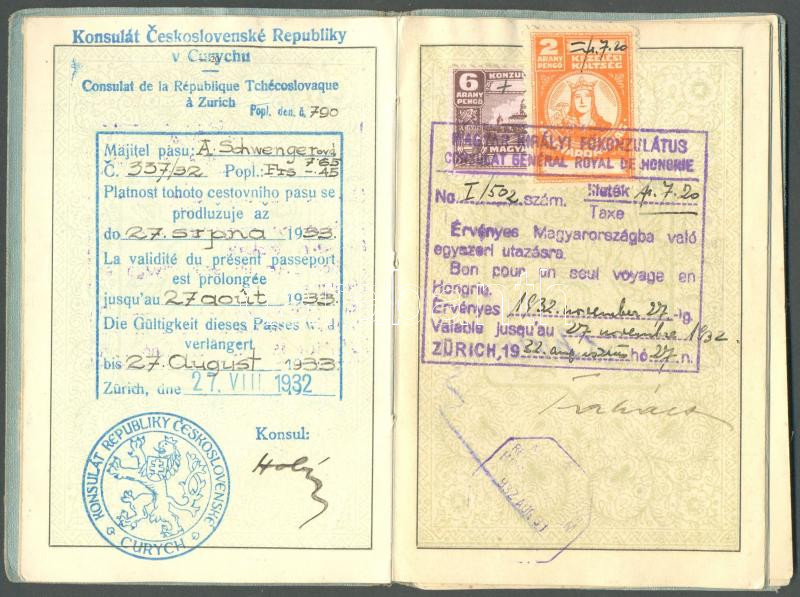 Konsulát Československé Republiky
v Curychu
Consulat de la République Tchécoslovaque
à Zurich
Popl. den. č. 790
Majitel pasu: A. Schwengerová
Č. 337/32 Popl.: Frs 7.65
-.45
Platnost tohoto cestovního pasu se
prodlužuje až
do 27. srpna 1933.
La validité du présent passeport
est prolongée
jusqu'au 27 août 1933.
Die Gültigkeit dieses Passes wird
verlängert
bis 27. August 1933.
Zürich, dne 27. VIII 1932
Konsul:
KONSULÁT REPUBLIKY ČESKOSLOVENSKÉ
CURYCH
6
ARANY
PENGŐ
KONZUL
MAGYAR
2
ARANY
PENGŐ
KEZELÉSI
KÖLTSÉG
4.7.20
MAGYAR KIRÁLYI FŐKONZULÁTUS
CONSULAT GÉNÉRAL ROYAL DE HONGRIE
No. I/502. szám. Illeték
Taxe p. 7.20
Érvényes Magyarországba való
egyszeri utazásra.
Bon pour un seul voyage en
Hongrie.
Érvényes 1932. november 27.-ig.
Valable jusqu'au 27 novembre 1932.
ZÜRICH, 19 32. augusztus hó 27. n.
Takács
932 AUG 31